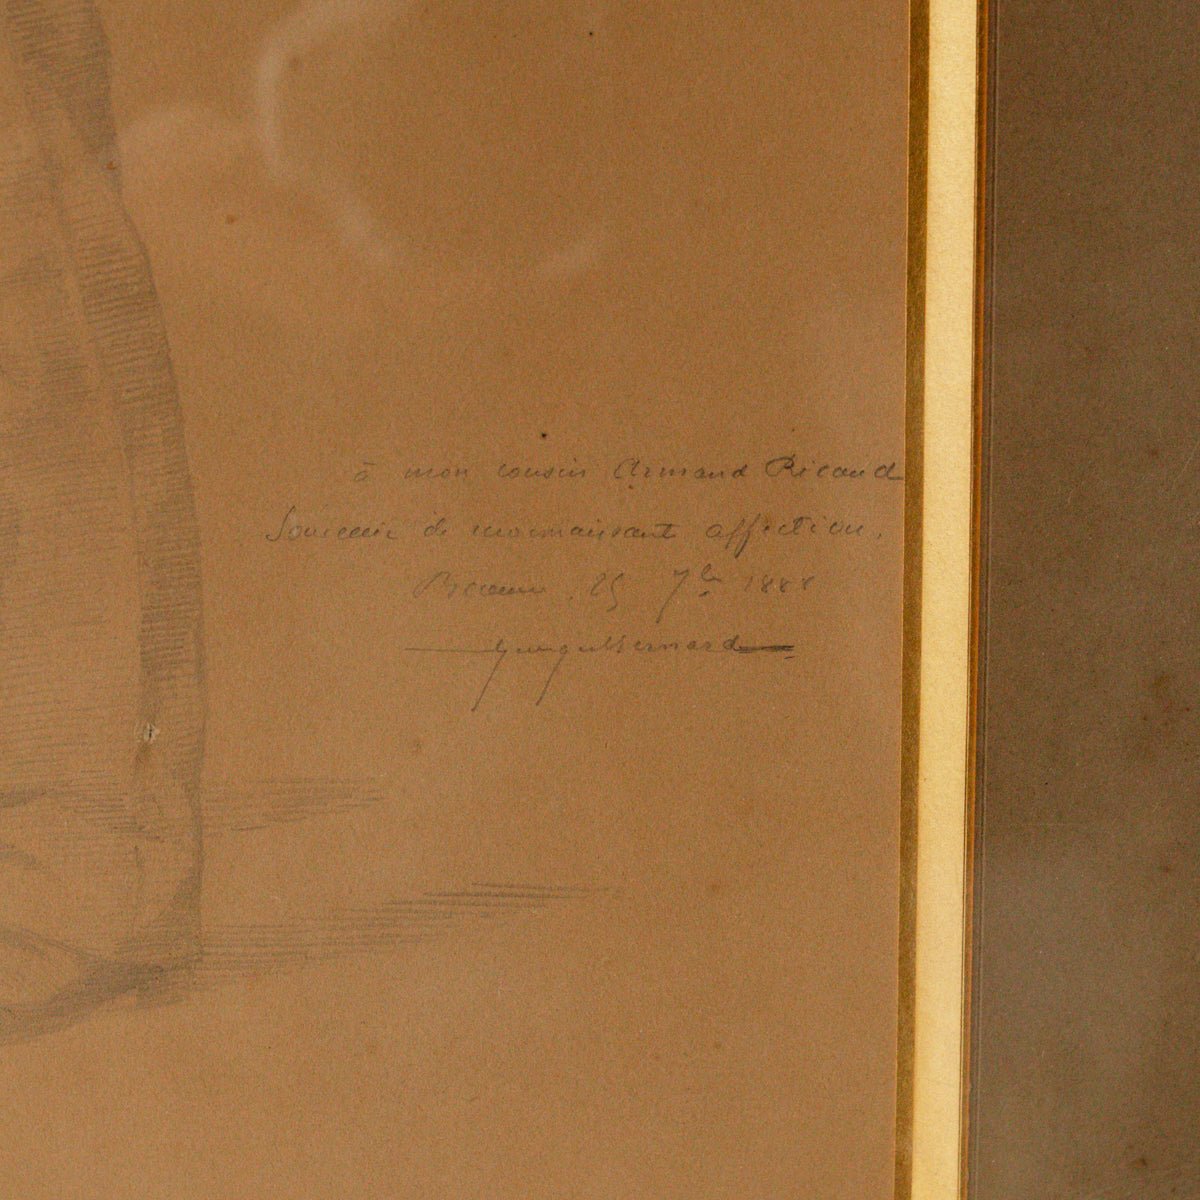 à mon cousin Armand Ricaud
Souvenir de reconnaissante affection.
25 7bre 1888
Bernard